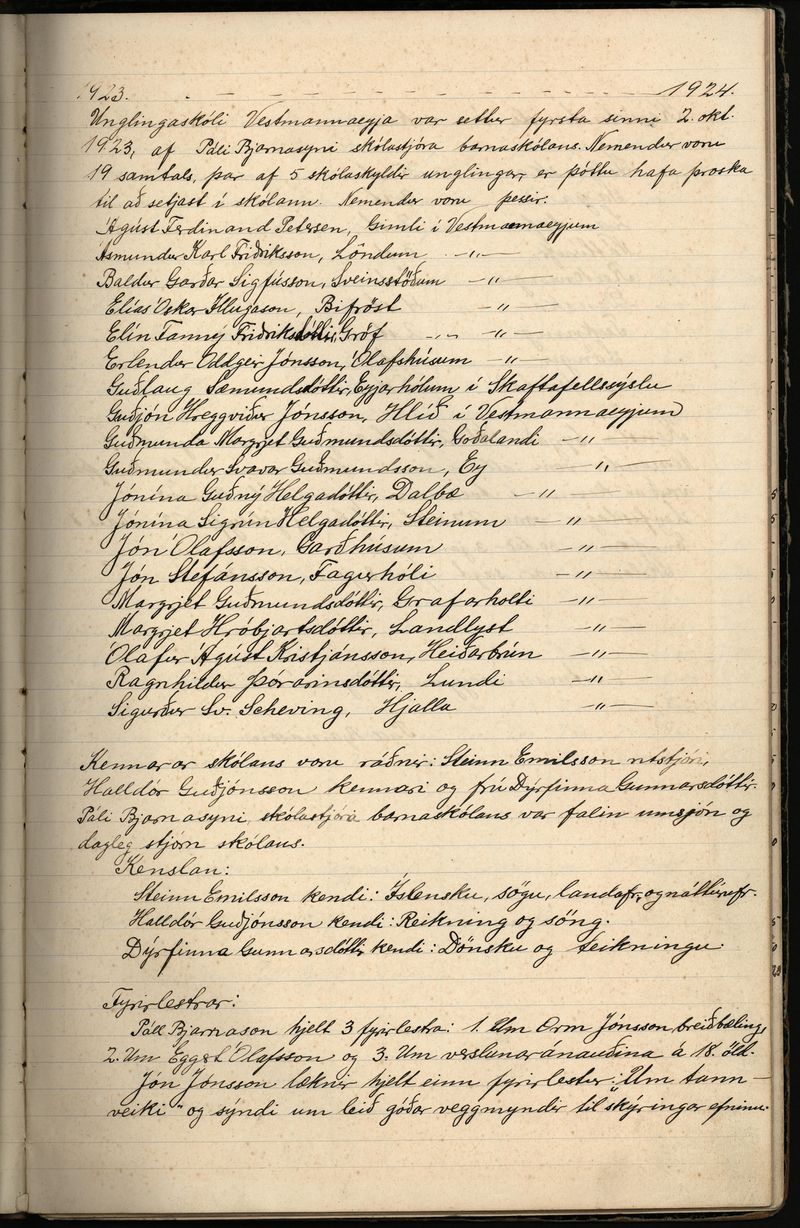 1923. - - - - - - - - - - 1924.
Unglingaskóli Vestmannaeyja var settur fyrsta sinni 2. okt.
1923, af Páli Bjarnasyni skólastjóra barnaskólans. Nemendur voru
19 samtals, þar af 5 skólaskyldir unglingar, er þóttu hafa þroska
til að setjast í skólann. Nemendur voru þessir:
Ágúst Ferdinand Petersen, Gimli í Vestmannaeyjum
Ásmundur Karl Friðriksson, Löndum -"-
Baldur Garðar Sigfússon, Sveinsstöðum -"-
Elías Óskar Illugason, Bifröst -"-
Elín Fanney Friðriksdóttir, Gröf -"-
Erlendur Oddgeir Jónsson, Ólafshúsum -"-
Guðlaug Sæmundsdóttir, Eyjarhólum í Skaftafellssýslu
Guðjón Hreggviður Jónsson, Hlíð í Vestmannaeyjum
Guðmunda Margrjet Guðmundsdóttir, Goðalandi -"-
Guðmundur Svavar Guðmundsson, Ey "-
Jónína Guðný Helgadóttir, Dalbæ -"-
Jónína Sigrún Helgadóttir, Steinum -"-
Jón Ólafsson, Garðhúsum -"-
Jón Stefánsson, Fagurhóli -"-
Margrjet Guðmundsdóttir, Grafarholti -"-
Margrjet Hróbjartsdóttir, Landlyst -"-
Ólafur Ágúst Kristjánsson, Heiðarbrún -"-
Ragnhildur Þórarinsdóttir, Lundi -"-
Sigurður Sv. Scheving, Hjalla -"-
Kennarar skólans voru ráðnir: Steinn Emilsson ritstjóri,
Halldór Guðjónsson kennari og frú Dýrfinna Gunnarsdóttir.
Páli Bjarnasyni, skólastjóra barnaskólans var falin umsjón og
dagleg stjórn skólans.
Kenslan:
Steinn Emilsson kendi: Íslensku, sögu, landafr. og náttúrufr.
Halldór Guðjónsson kendi: Reikning og söng.
Dýrfinna Gunnarsdóttir kendi: Dönsku og teikningu.
Fyrirlestrar:
Páll Bjarnason hjelt 3 fyrirlestra: 1. Um Orm Jónsson, breiðbæling,
2. Um Eggert Ólafsson og 3. Um verslunaránauðina á 18. öld.
Jón Jónsson læknir hjelt einn fyrirlestur: "Um tann-
veiki" og sýndi um leið góðar veggmyndir til skýringar efninu.